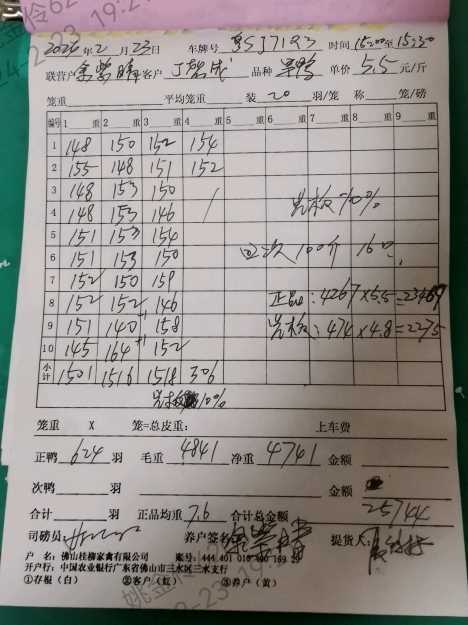 2024年2月23日 车牌号 时间15:00至15:30
联营户 客户 品种 单价 5.5 元/斤
笼重 平均笼重 装 20 羽/笼 称 笼/磅
编号 1 重 2 重 3 重 4 重 5 重 6 重 7 重 8 重 9 重
1 148 150 152 154
2 155 148 151 152
3 148 153 150
4 148 153 146 光板10%
5 151 153 154
6 151 153 150 100斤
7 152 150 159
8 152 152 146 正品:4267×5.5=23469
9 151 140+1 158 光板:474×4.8=2275
10 145 164+1 152
小计 1501 1516 1518 306
光板10%
笼重 X 笼=总皮重: 上车费
正鸭 624 羽 毛重 4841 净重 4741 金额
次鸭 羽 金额
合计 羽 正品均重 7.6 合计总金额 25744
司磅员 养户签名 提货人:
户 名:佛山桂柳家禽有限公司 账号:444 401 010 400 169 29
开户行:中国农业银行广东省佛山市三水区三水支行
①存根(白) ②客户(红) ③养户(黄)